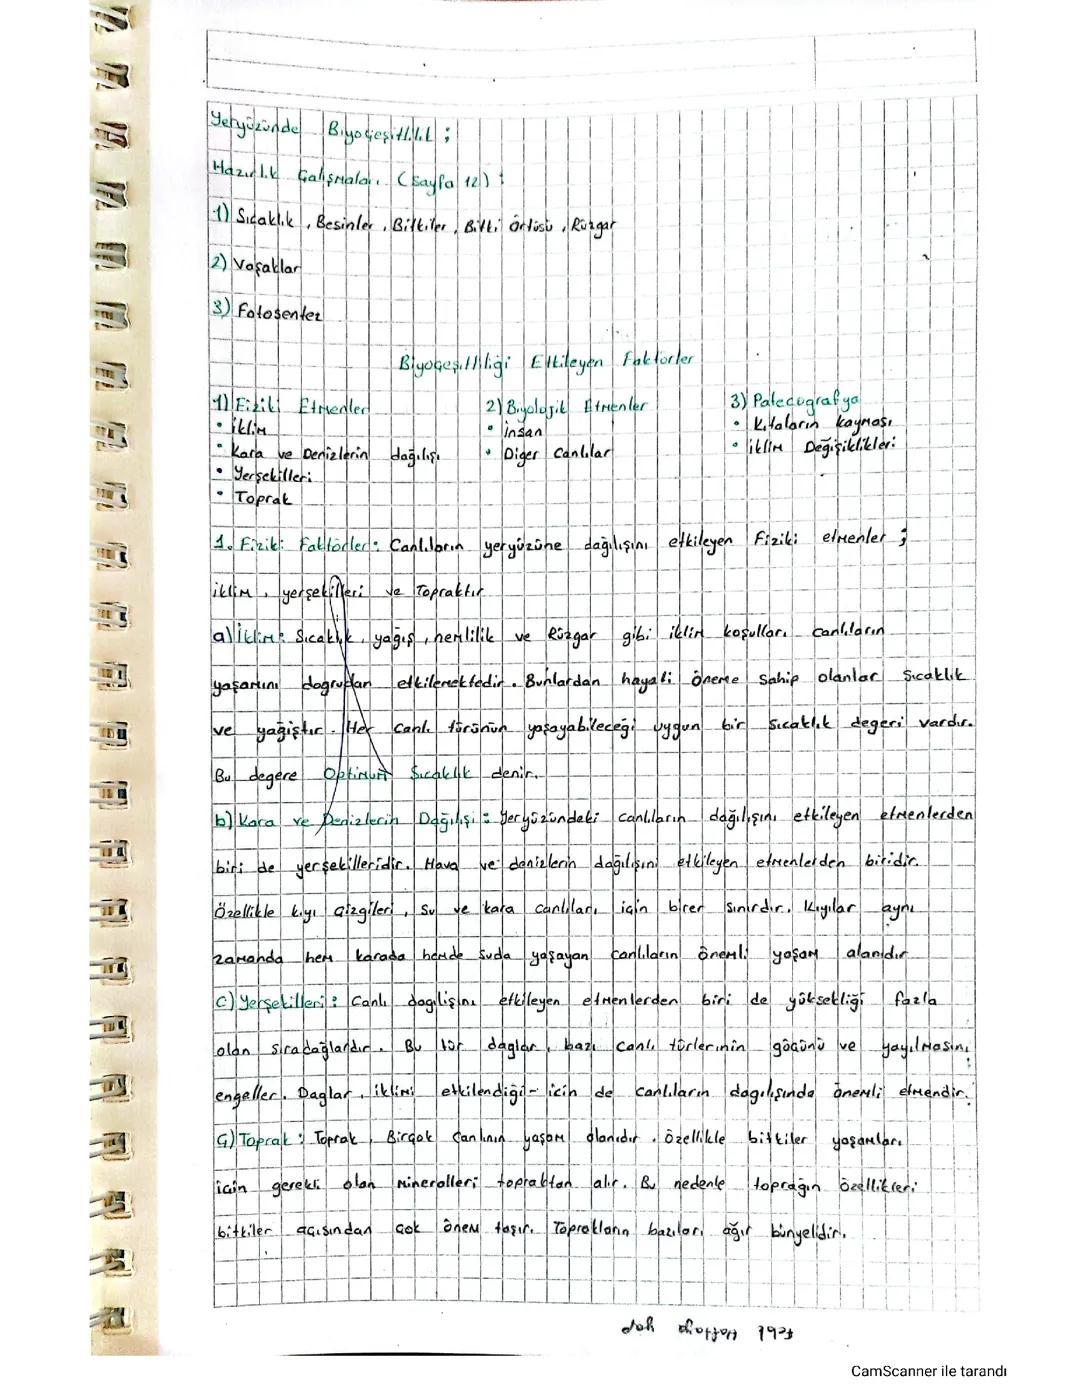 Yeryüzünde Biyoçeşitlilik ;
Hazırlık Çalışmaları (Sayfa 12) :
1) Sıcaklık , Besinler , Bitkiler , Bitki Örtüsü , Rüzgar
2) Vaşaklar
3) Fotosentez
Biyoçeşitliliği Etkileyen Faktörler
1) Fiziki Etmenler
• iklim
• Kara ve Denizlerin dağılışı
• Yerşekilleri
• Toprak
2) Biyolojik Etmenler
• İnsan
• Diger Canlılar
3) Paleocografya
• Kıtaların kayması
• iklim Değişiklikleri
1. Fiziki Faktörler : Canlıların yeryüzüne dağılışını etkileyen Fiziki etmenler ;
iklim , yerşekilleri ve Topraktır
a) İklim : Sıcaklık , yağış , nemlilik ve Rüzgar gibi iklim koşulları canlıların
yaşamını dogrudan etkilemektedir . Bunlardan hayati öneme sahip olanlar Sıcaklık
ve yağıştır . Her canlı türünün yaşayabileceği uygun bir sıcaklık degeri vardır.
Bu degere Optimum Sıcaklık denir.
b) Kara ve Denizlerin Dağılışı : Yeryüzündeki canlıların dağılışını etkileyen etmenlerden
biri de yerşekilleridir. Hava ve denizlerin dağılışını etkileyen etmenlerden biridir.
Özellikle kıyı çizgileri , su ve kara canlıları için birer sınırdır. Kıyılar aynı
zamanda hem karada hemde suda yaşayan canlıların önemli yaşam alanıdır
C) Yerşekilleri : Canlı dagılışını etkileyen etmenlerden biri de yüksekliği fazla
olan sıradağlardır . Bu tür daglar , bazı canlı türlerinin göçünü ve yayılmasını
engeller . Daglar , iklimi etkilendiği- için de canlıların dagılışında önemli etmendir.
Ç) Toprak : Toprak , Birçok Canlının yaşam alanıdır . Özellikle bitkiler yaşamları
için gerekli olan minerolleri topraktan alır. Bu nedenle toprağın özellikleri
bitkiler açısından çok önem taşır. Toprakların bazıları ağır bünyelidir.
CamScanner ile tarandı